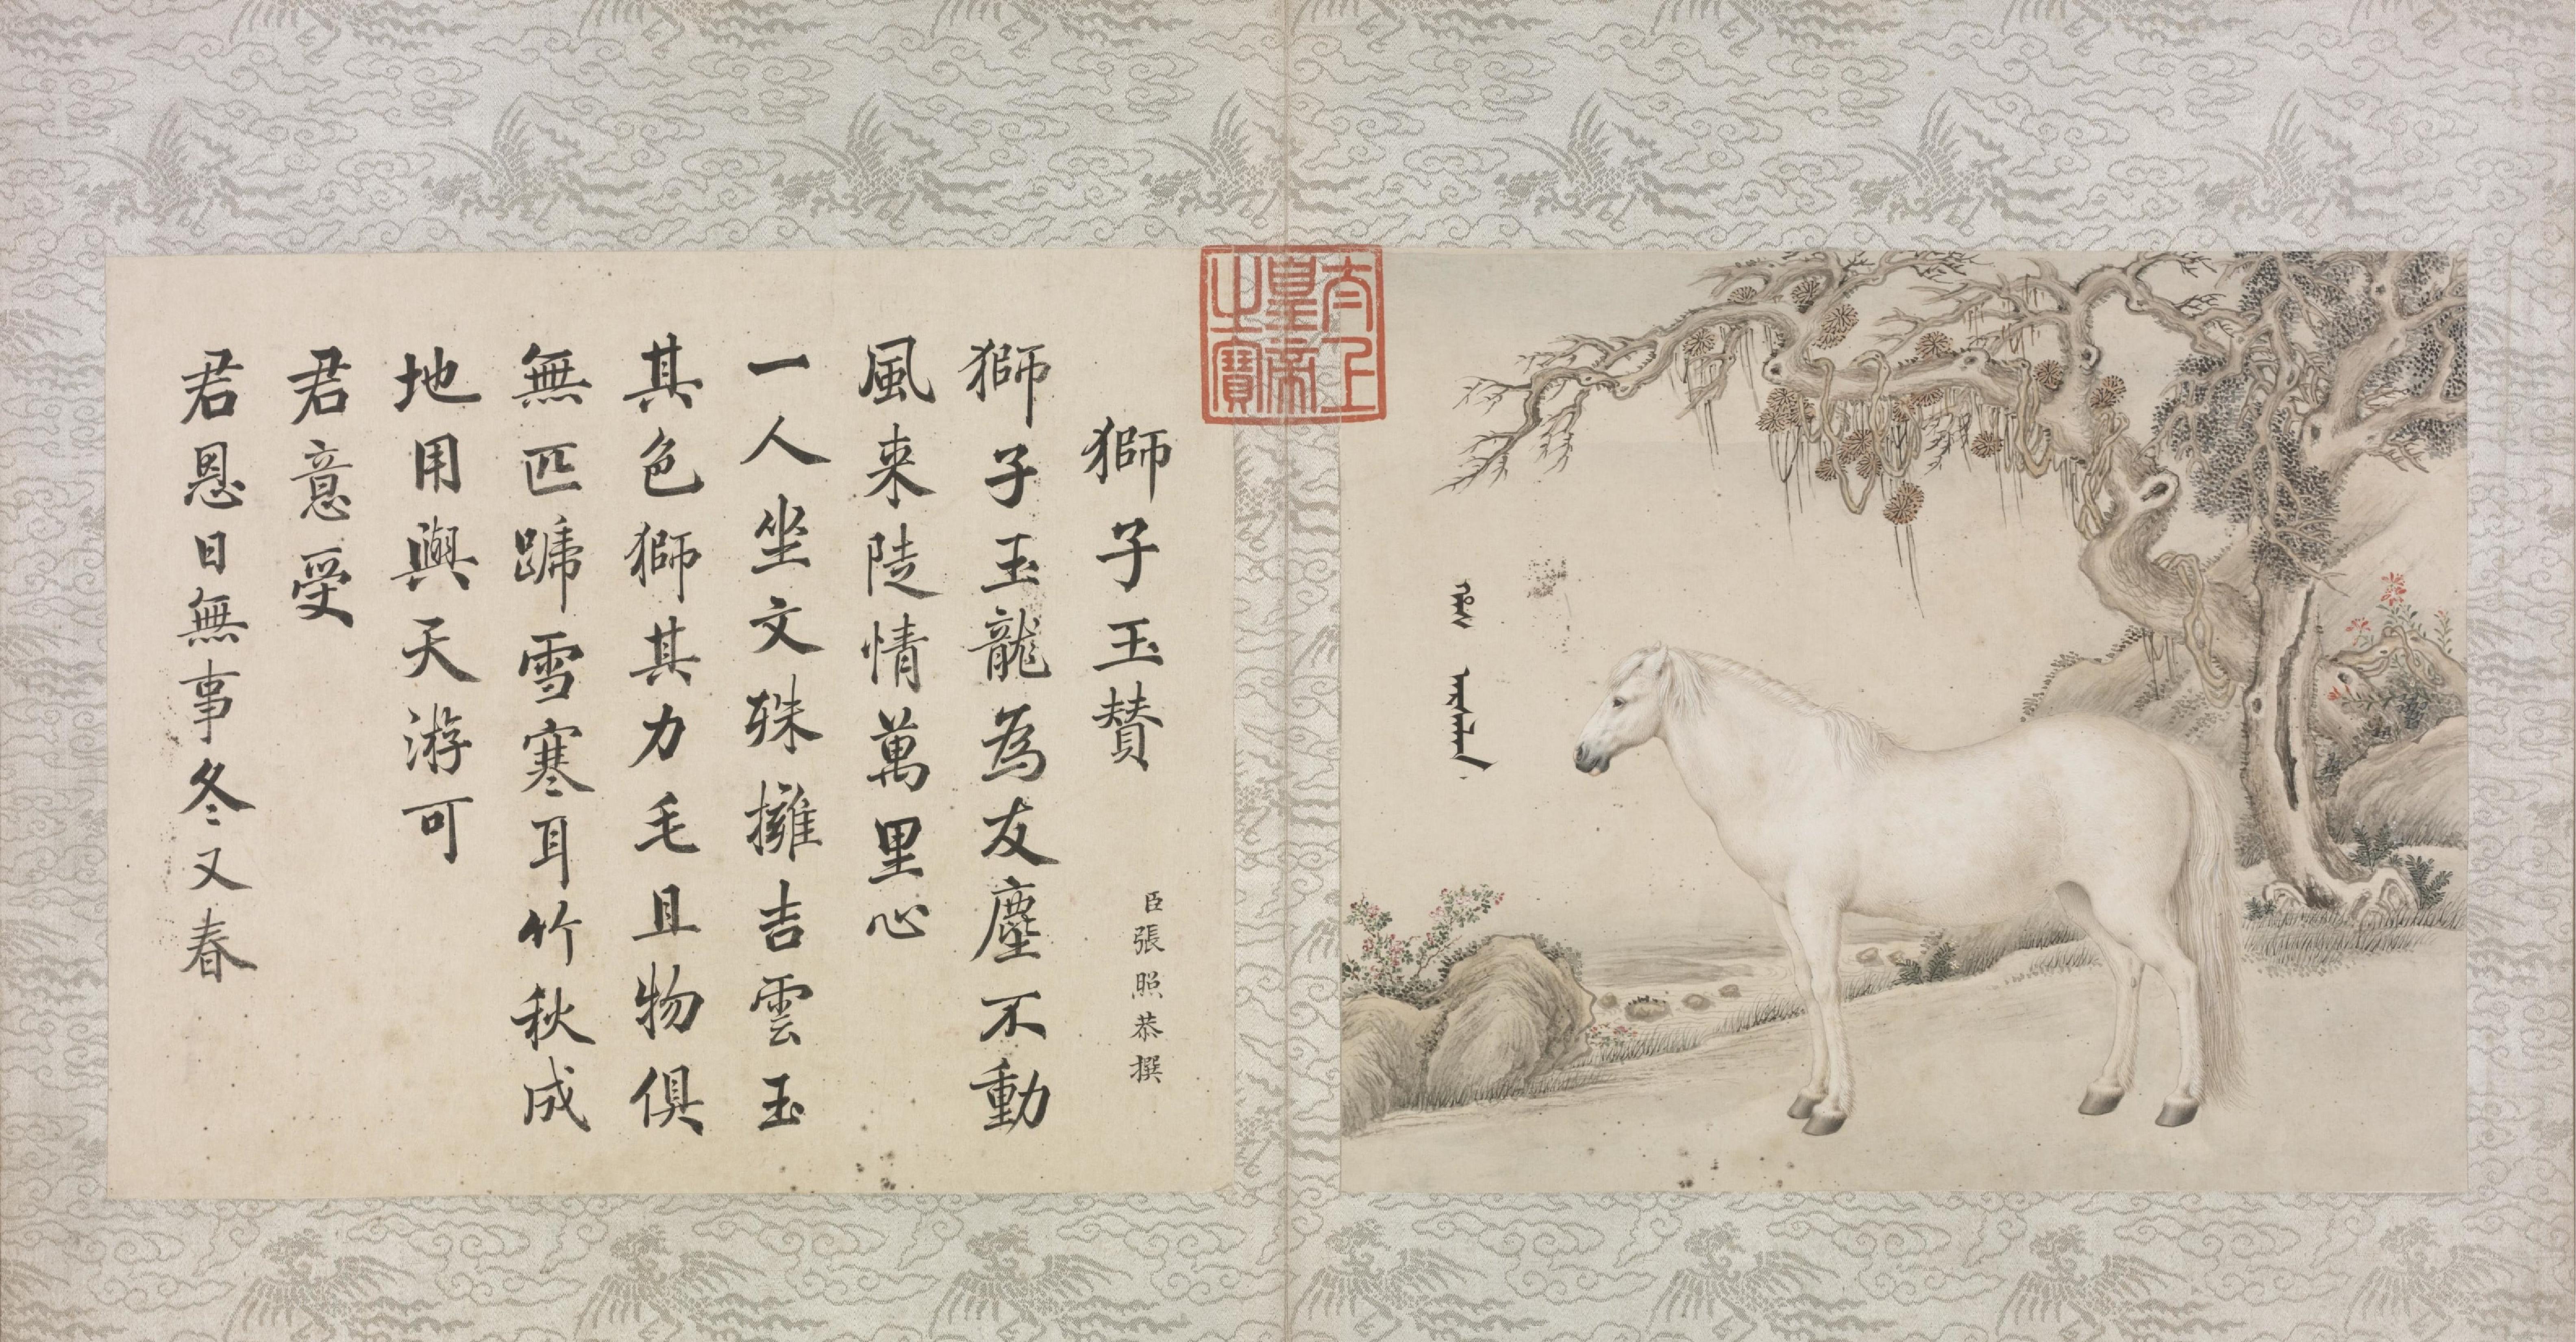 獅子玉賛
臣張照恭撰
獅子玉龍為友塵不動
風来陡情萬里心
一人坐文殊擁吉雲玉
其色獅其力毛且物俱
無匹蹏雪寒耳竹秋成
地用與天游可
君意受
君恩日無事冬又春
太上皇帝之寶